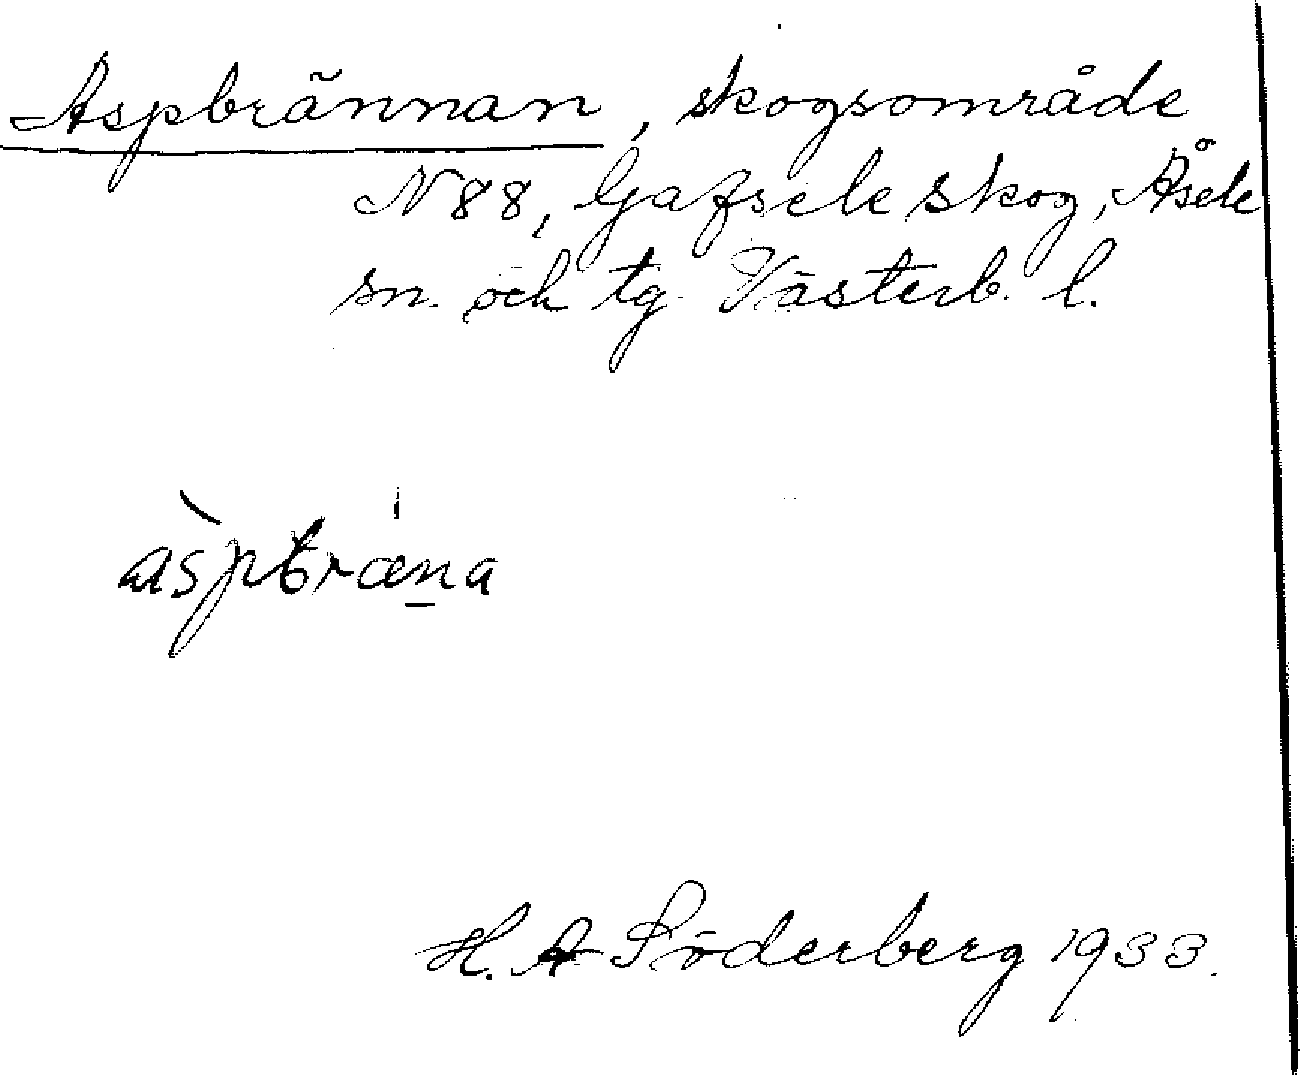 Aspbrännan, skogsområde
N 88, Gafsele skog, Åsele
sn. och tg. Västerb. l.
àspbræ̍n̠a
H. A Söderberg 1933.